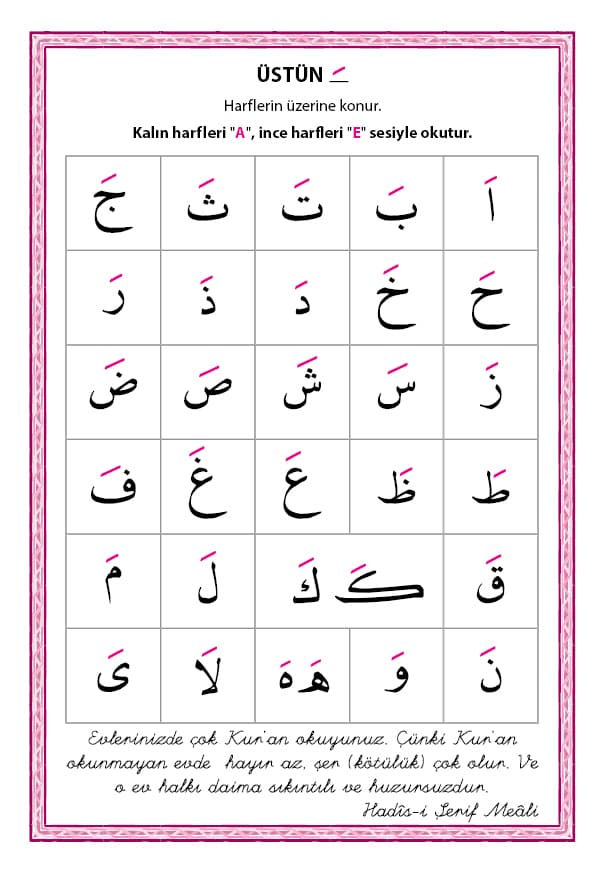 ÜSTÜN ـَ
Harflerin üzerine konur.
Kalın harfleri "A", ince harfleri "E" sesiyle okutur.
اَ بَ تَ ثَ جَ
حَ خَ دَ ذَ رَ
زَ سَ شَ صَ ضَ
طَ ظَ عَ غَ فَ
قَ كَـ كَ لَ مَ
نَ وَ هَـ هَ لَا یَ
Evlerinizde çok Kur'an okuyunuz. Çünki Kur'an
okunmayan evde hayır az, şer (kötülük) çok olur. Ve
o ev halkı daima sıkıntılı ve huzursuzdur.
Hadîs-i Şerif Meâli